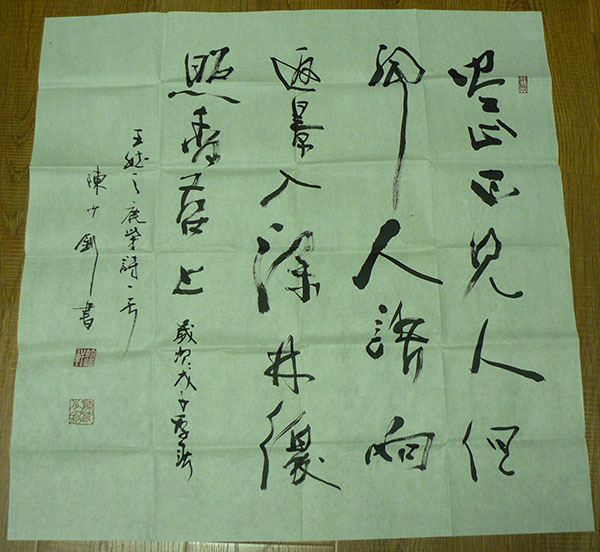 空山不見人但
聞人語响
返景入深林復
照青苔上 歲於戊子
王維之鹿柴詩一首
陳少 書